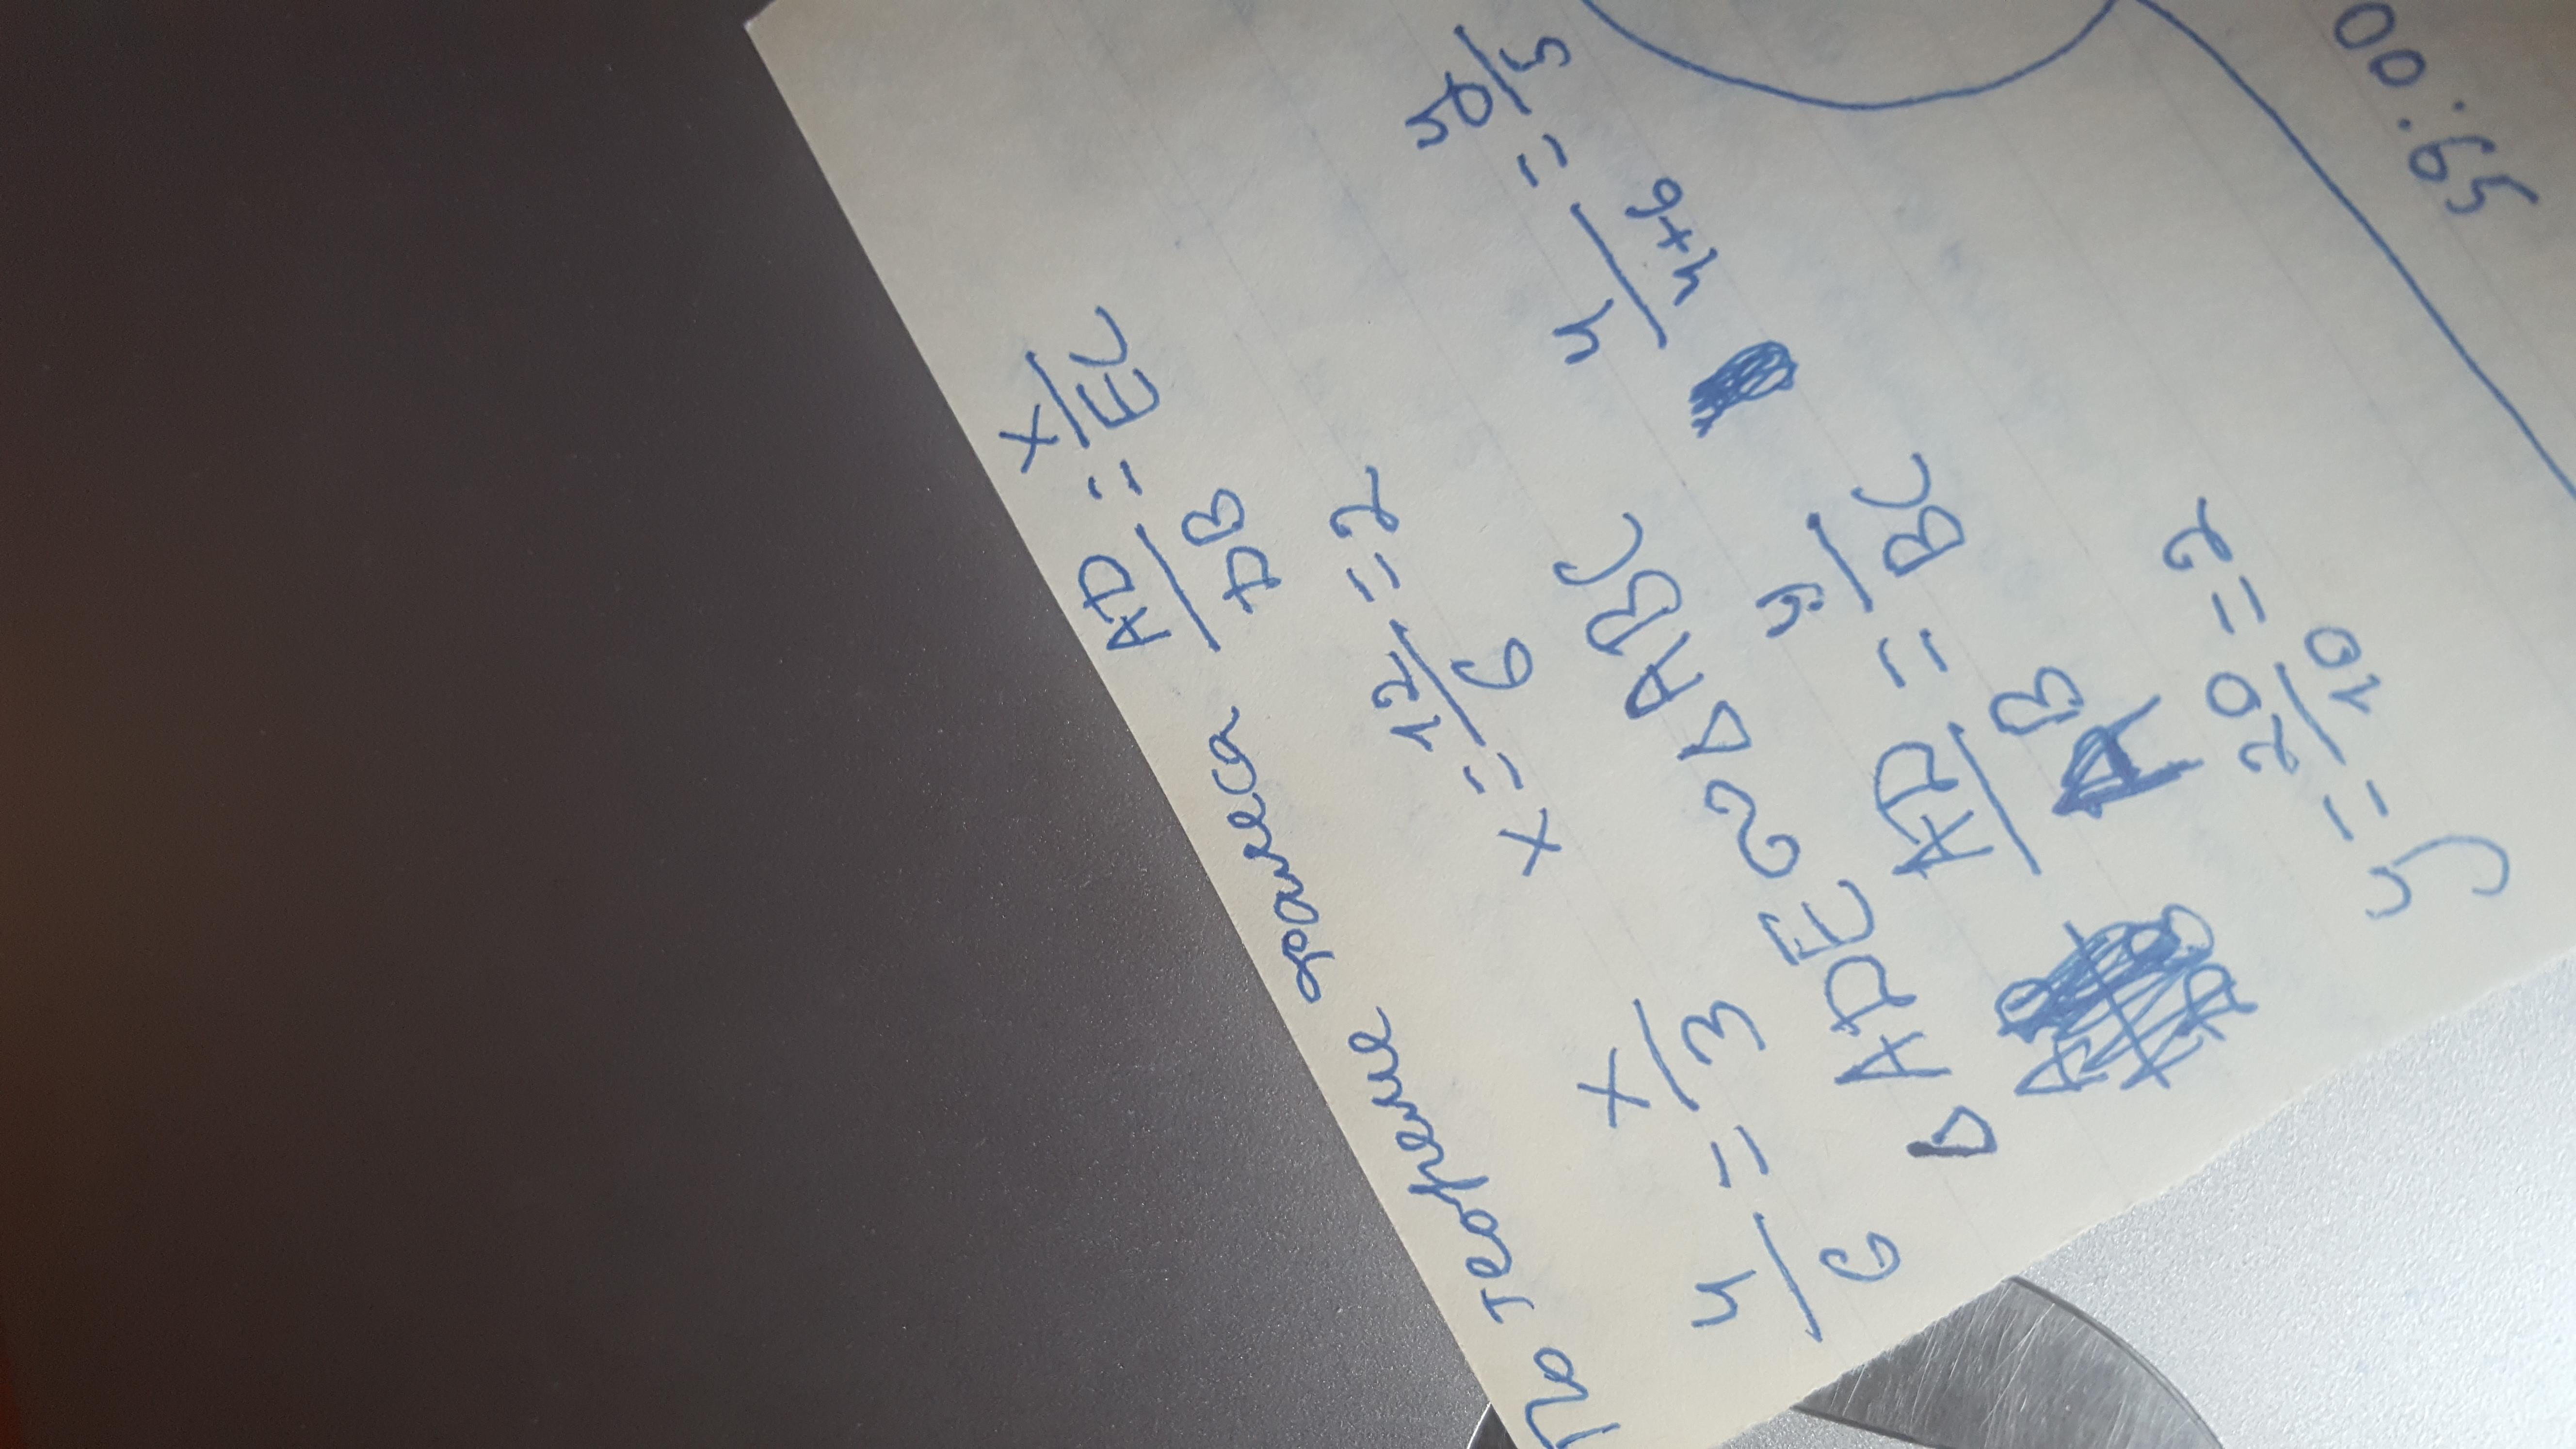 По теореме фалеса AD/DB = x/EC
4/6 = x/3 x = 12/6 = 2
△ADE ∾ △ABC
AD/AB = y/BC 4/4+6 = y/5
y = 20/10 = 2
59.00